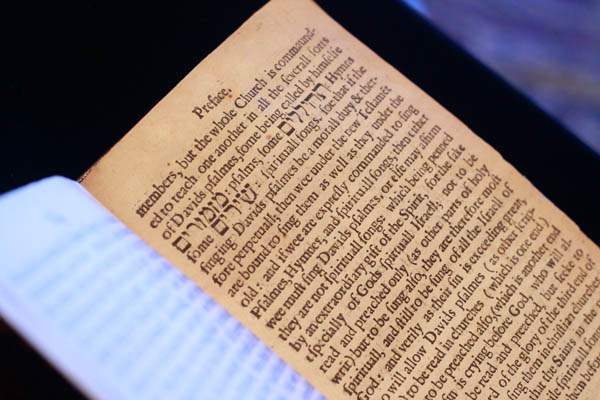 Preface.
members, but the whole Church is commaund-
ed to teach one another in all the ſeverall ſorts
of Davids pſalmes, ſome being called by himſelfe
מזמורים : pſalms, ſome תהילים : Hymns
ſome שירים : ſpirituall ſongs. ſoe that if the
ſinging Davids pſalmes be a morall duty & ther-
fore perpetuall; then wee under the new Teſtamēt
are bound to ſing them as well as they under the
old: and if wee are expreſly commanded to ſing
Pſalmes, Hymnes, and ſpirituall ſongs, then either
wee muſt ſing Davids pſalmes, or elſe may affirm
they are not ſpirituall ſongs: which being penned
by an extraordinary gift of the Spirit, for the ſake
eſpecially of Gods ſpirituall Iſraell, not to be
read and preached only (as other parts of holy
writ) but to be ſung alſo, they are therefore moſt
ſpirituall, and ſtill to be ſung of all the Iſraell of
God: and verily as their ſin is exceeding great,
will allow Davids pſalmes (as other ſcrip-
to be read in churches (which is one end)
to be preached alſo, (which is another end
ſin is crying before God, who will al-
be read and preached, but ſeeke to
of the glory of the third end of
ſing them in chriſtian churches
the Saints